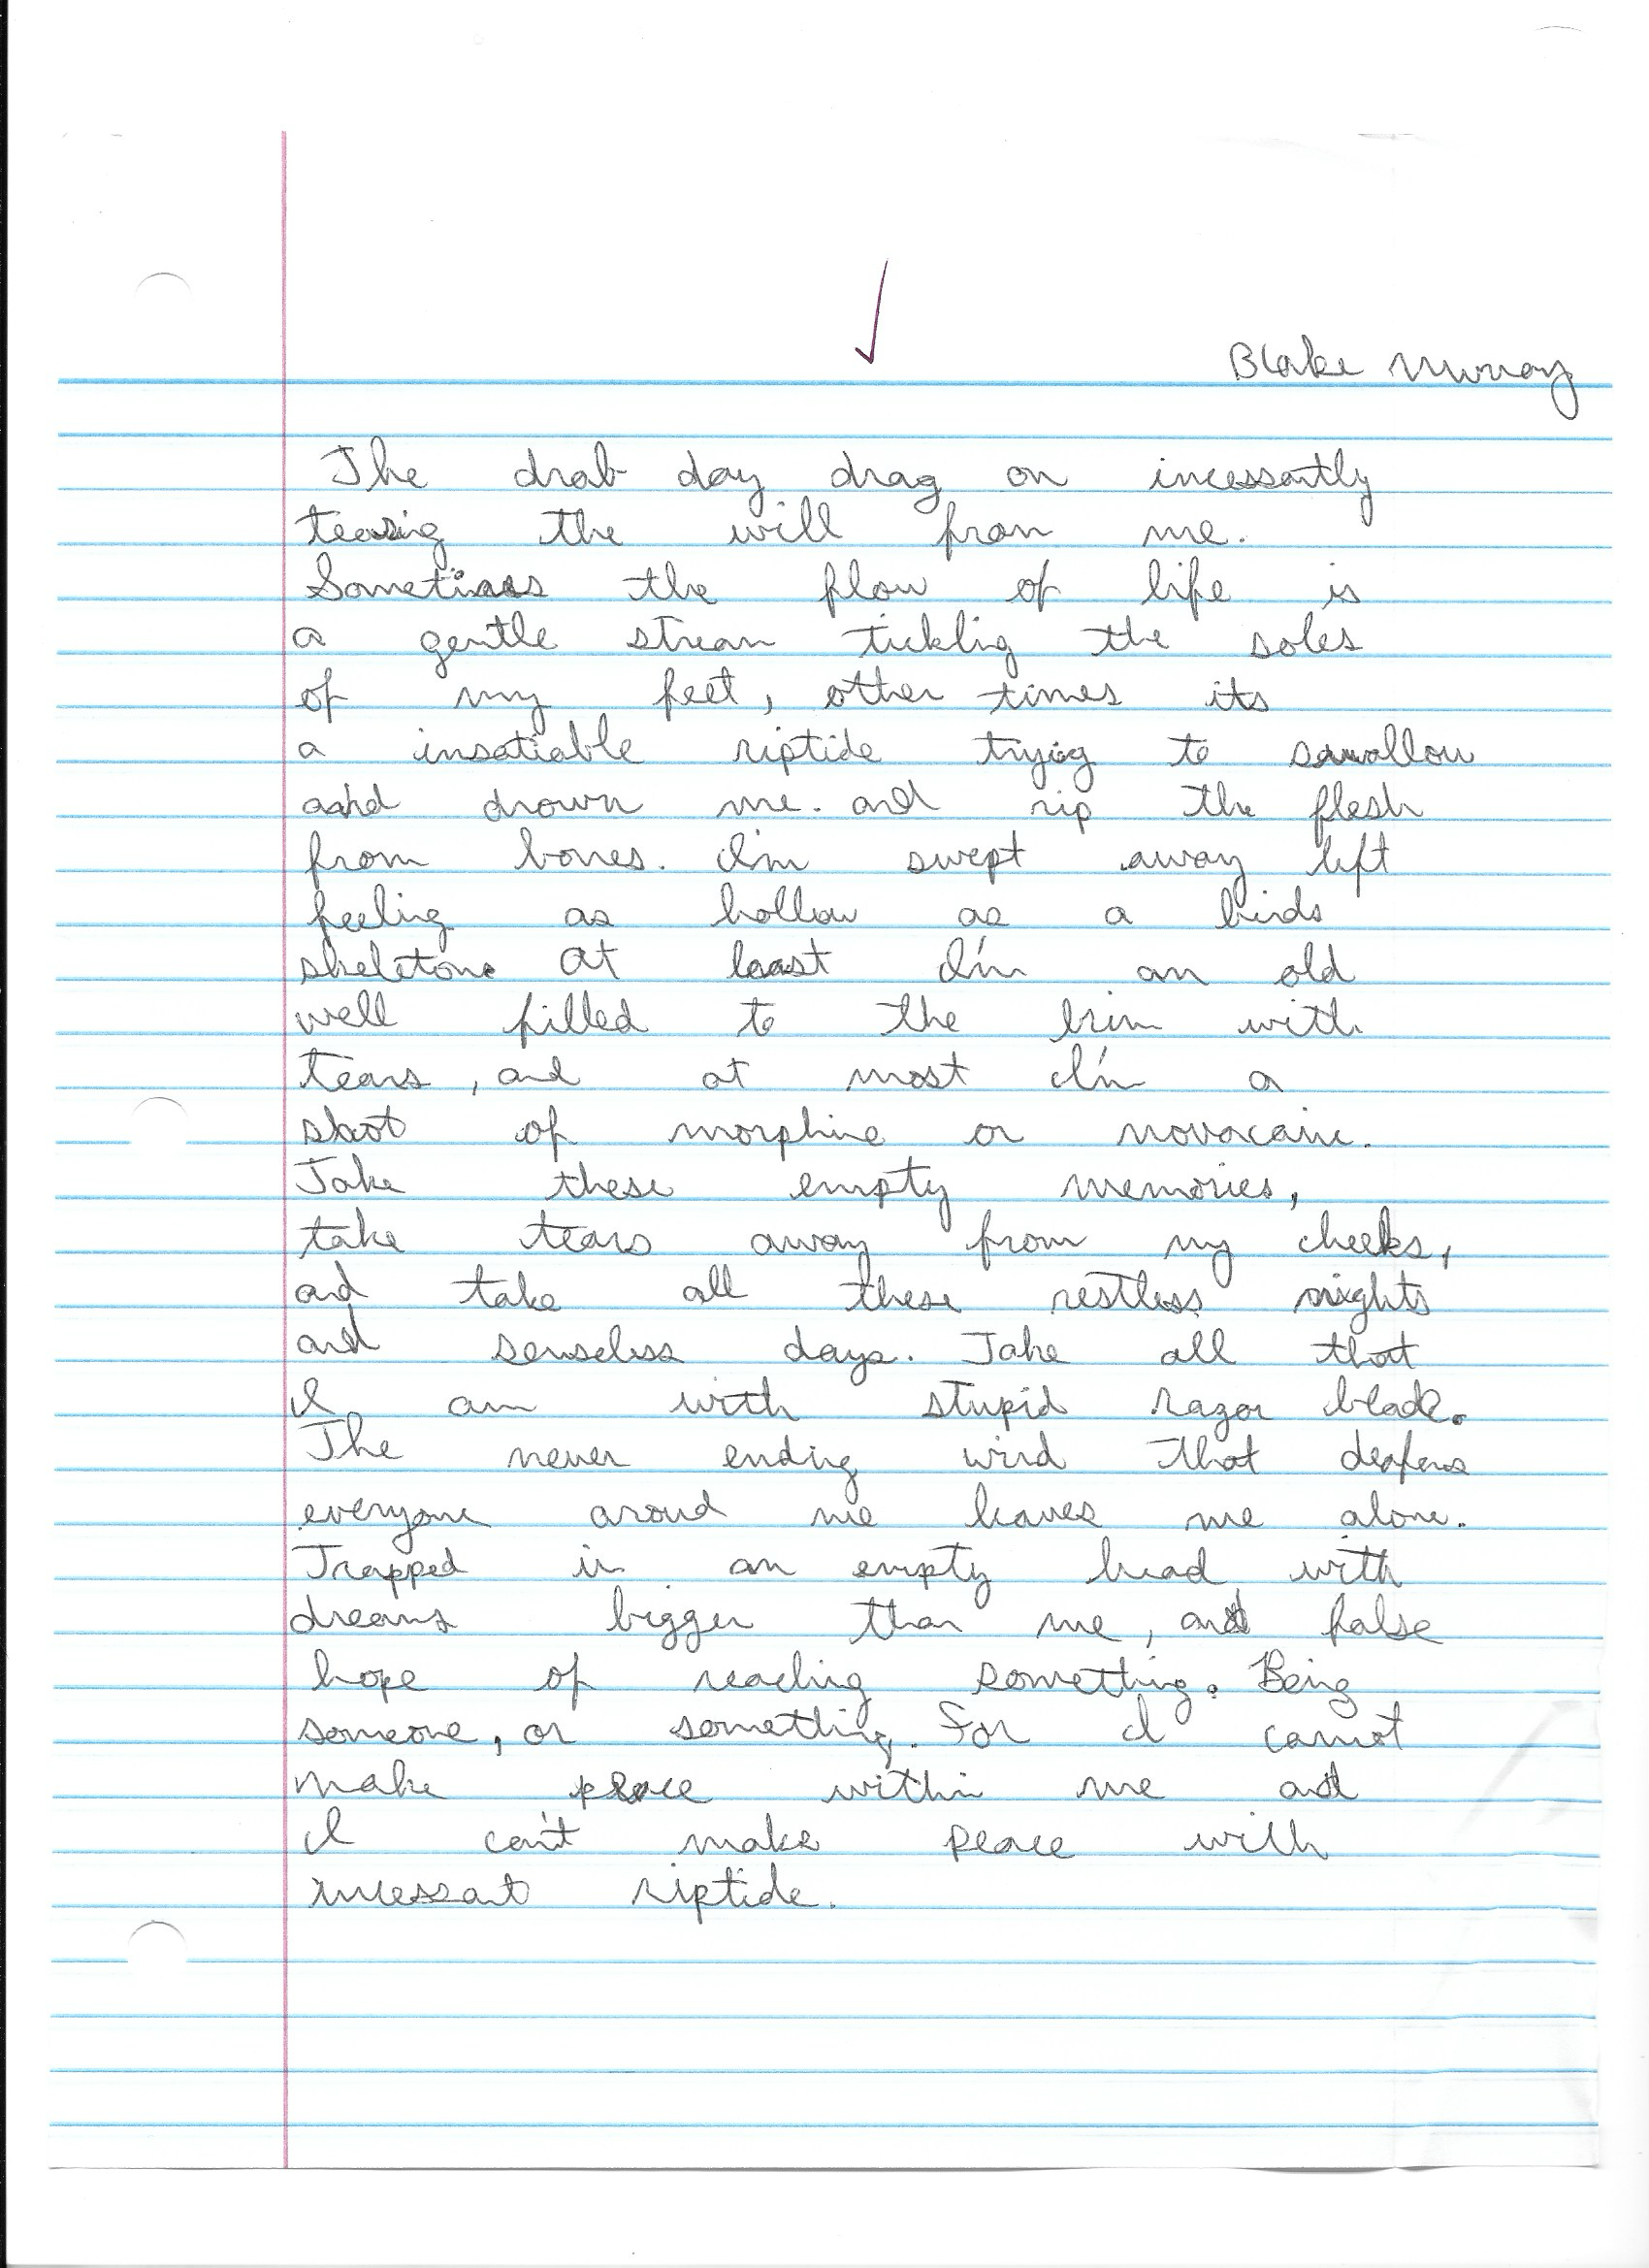 Blake Murray
The drab day drag on incessantly
teasing the will from me.
Sometimes the flow of life is
a gentle stream tickling the soles
of my feet, other times its
a insatiable riptide trying to swallow
and drown me. and rip the flesh
from bones. I'm swept away left
feeling as hollow as a birds
skeleton. At least I'm an old
well filled to the brim with
tears, and at most I'm a
shot of morphine or novocaine.
Take these empty memories,
take tears away from my cheeks,
and take all these restless nights
and senseless days. Take all that
I am with stupid razor blade.
The never ending wind that deafens
everyone around me leaves me alone.
Trapped in an empty head with
dreams bigger than me, and false
hope of reaching something. Being
someone, or something. For I cannot
make peace within me and
I can't make peace with
incessant riptide.